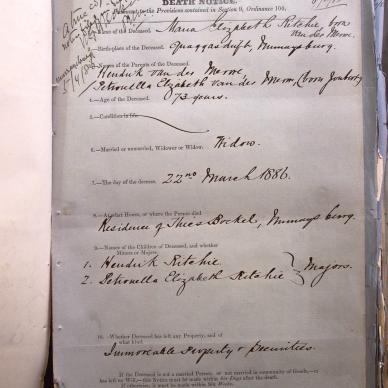 DEATH NOTICE.
Pursuant to the Provisions contained in Section 9, Ordinance 104,
1.—Name of the Deceased. Maria Elizabeth Ritchie, born
van der Merwe.
2.—Birth-place of the Deceased. Quaggasdrift, Murraysburg.
3.—Names of the Parents of the Deceased.
Hendrik van der Merwe,
Petronella Elizabeth van der Merwe (born Joubert)
4.—Age of the Deceased. 73 years.
5.—Condition in life.
6.—Married or unmarried, Widower or Widow. Widow.
7.—The day of the decease. 22nd March 1886.
8.—At what House, or where the Person died
Residence of Thies Bockel, Murraysburg.
9.—Names of the Children of Deceased, and whether
Minors or Majors.
1. Hendrik Ritchie
2. Petronella Elizabeth Ritchie } Majors.
10.—Whether Deceased has left any Property, and of
what kind.
Immoveable Property & Securities.
If the Deceased is not a married Person, or not married in community of Goods,—or
has left no Will,—this Notice must be made within six Days after the death.
If otherwise, it must be made within Six Weeks.